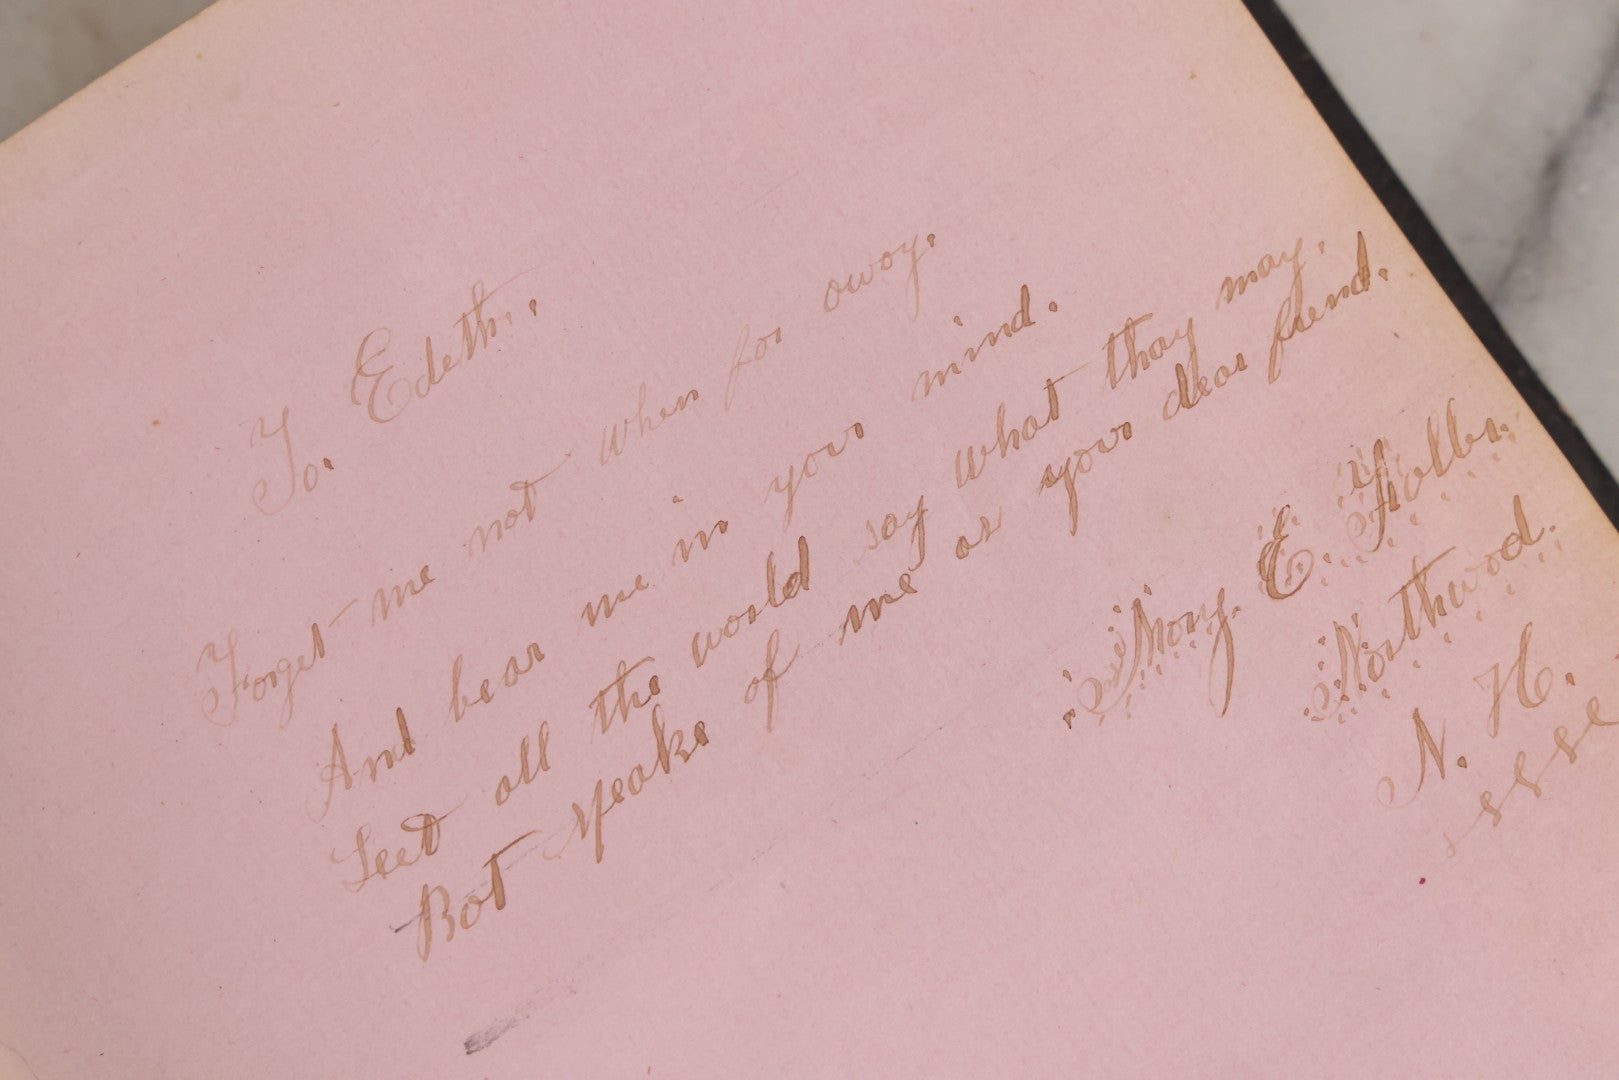 To. Edeth.
Forget me not when far away.
And bear me in your mind.
Leet all the world say what thay may.
Bot speake of me as your dear friend.
Mary. E.
Northwood.
N. H.